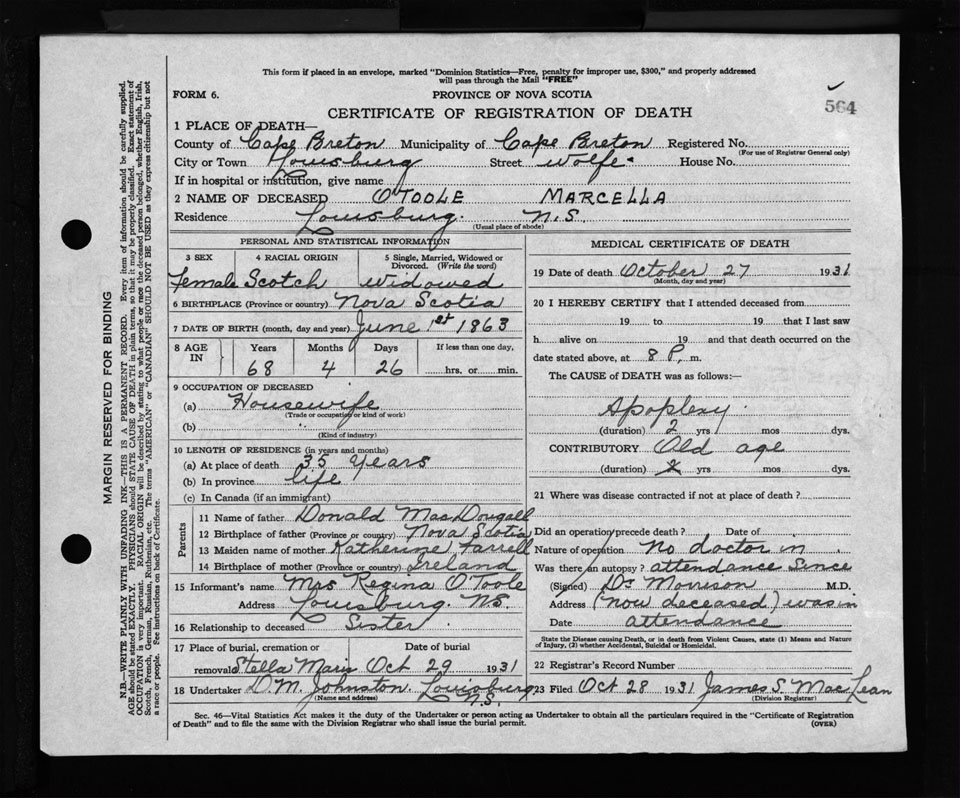 This form if placed in an envelope, marked "Dominion Statistics—Free, penalty for improper use, $300," and properly addressed
will pass through the Mail "FREE"
FORM 6.
PROVINCE OF NOVA SCOTIA
564
CERTIFICATE OF REGISTRATION OF DEATH
1 PLACE OF DEATH—
County of Cape Breton Municipality of Cape Breton Registered No.
(For use of Registrar General only)
City or Town Louisburg Street Wolfe House No.
If in hospital or institution, give name
2 NAME OF DECEASED O'TOOLE MARCELLA
Residence Louisburg. N.S.
(Usual place of abode)
PERSONAL AND STATISTICAL INFORMATION
3 SEX 4 RACIAL ORIGIN 5 Single, Married, Widowed or
Divorced. (Write the word)
Female Scotch widowed
6 BIRTHPLACE (Province or country) Nova Scotia
7 DATE OF BIRTH (month, day and year) June 1st 1863
8 AGE IN Years Months Days If less than one day,
68 4 26 hrs. or min.
9 OCCUPATION OF DECEASED
(a) Housewife
(Trade or occupation or kind of work)
(b)
(Kind of industry)
10 LENGTH OF RESIDENCE (in years and months)
(a) At place of death 35 years
(b) In province life
(c) In Canada (if an immigrant)
Parents
11 Name of father Donald MacDougall
12 Birthplace of father (Province or country) Nova Scotia
13 Maiden name of mother Katherine Farrell
14 Birthplace of mother (Province or country) Ireland
15 Informant's name Mrs Regina O'Toole
Address Louisburg. N.S.
16 Relationship to deceased Sister
17 Place of burial, cremation or Date of burial
removal Stella Maris Oct 29 1931
18 Undertaker D.M. Johnston. Louisburg N.S.
(Name and address)
MEDICAL CERTIFICATE OF DEATH
19 Date of death October 27 1931
(Month, day and year)
20 I HEREBY CERTIFY that I attended deceased from
19 to 19 that I last saw
h alive on 19 and that death occurred on the
date stated above, at 8 P. m.
The CAUSE of DEATH was as follows:—
Apoplexy
(duration) 2 yrs mos dys.
CONTRIBUTORY Old age
(duration) 2 yrs mos dys.
21 Where was disease contracted if not at place of death?
Did an operation precede death? Date of
Nature of operation No doctor in
Was there an autopsy? attendance since
(Signed) Dr Morrison M.D.
Address (now deceased) was in
Date attendance
State the Disease causing Death, or in death from Violent Causes, state (1) Means and Nature
of Injury, (2) whether Accidental, Suicidal or Homicidal.
22 Registrar's Record Number
23 Filed Oct 28 1931 James S. MacLean
(Division Registrar)
Sec. 46—Vital Statistics Act makes it the duty of the Undertaker or person acting as Undertaker to obtain all the particulars required in the "Certificate of Registration
of Death" and to file the same with the Division Registrar who shall issue the burial permit.
(OVER)
MARGIN RESERVED FOR BINDING
N.B.—WRITE PLAINLY WITH UNFADING INK—THIS IS A PERMANENT RECORD. Every item of information should be carefully supplied.
AGE should be stated EXACTLY. PHYSICIANS should STATE CAUSE OF DEATH in plain terms, so that it may be properly classified. Exact statement of
OCCUPATION is very important. RACIAL ORIGIN will be described by stating to what people or race the deceased person belonged, whether English, Irish,
Scotch, French, German, Russian, Ruthenian, etc. The terms "AMERICAN" or "CANADIAN" SHOULD NOT BE USED as they express citizenship but not
a race or people. See instructions on back of Certificate.